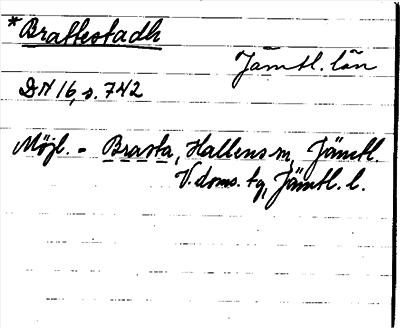 *Brattestadh
Jämtl. län
DN 16, s. 742
Möjl. = Brasta, Hallens sn, Jämtl.
V. doms. tg, Jämtl. l.